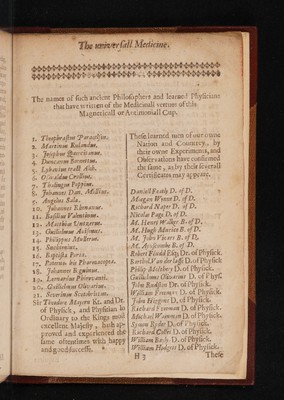 The universall Medicine.
The names of such ancient Philosophers and learned Physicians
that have written of the Medicinall vertues of this
Magneticall or Antimoniall Cup.
1. Theophrastus Paracelsus.
2. Martinus Rulandus.
3. Josephus Quercetanus.
4. Duncanus Bornettus.
5. Lybavius
6. Oswaldus Crollius.
7. Thelingus Poppius.
8. Johannes Dan. Millius.
9. Angelus Sala.
10. Johannes
11. Basilius Valentinus.
12. Matthias Untzerus.
13. Guilielmus
14. Philippus
15. Suchtenius.
16. Baptista Porta.
17. Poterus in Pharmacopea.
18. Johannes Beguinus.
19. Leonardus Fioravanti.
20. Guilielmus
21. Severinus
Sr Theodore Mayern Kt. and Dr.
of Physick, and Physitian in
Ordinary to the Kings most
excellent Majesty, hath ap-
proved and experienced the
same oftentimes with happy
and good successe.
These learned men of our owne
Nation and Countrey, by
their owne Experiments, and
Observations have confirmed
the same, as by their severall
Certificates may appeare.
Daniel D. of D.
Morgan D. of D.
Richard Naper D. of D.
Nicolas Page D. of D.
M. Henry B. of D.
M. Hugh B. of D.
M. John B. of D.
M. B. of D.
Robert Floudd Esq; Dr. of Physick.
Dr. of Physick.
Philip D. of Physick.
Guilielmus D. of Phys.
John Dr. of Physick.
William D. of Physick.
John Higgins D. of Physick.
Richard D. of Physick.
Michael D. of Physick.
Symon D. of Physick.
Richard D. of Physick.
William D. of Physick.
William Hodges D. of Physick.
H 3 These